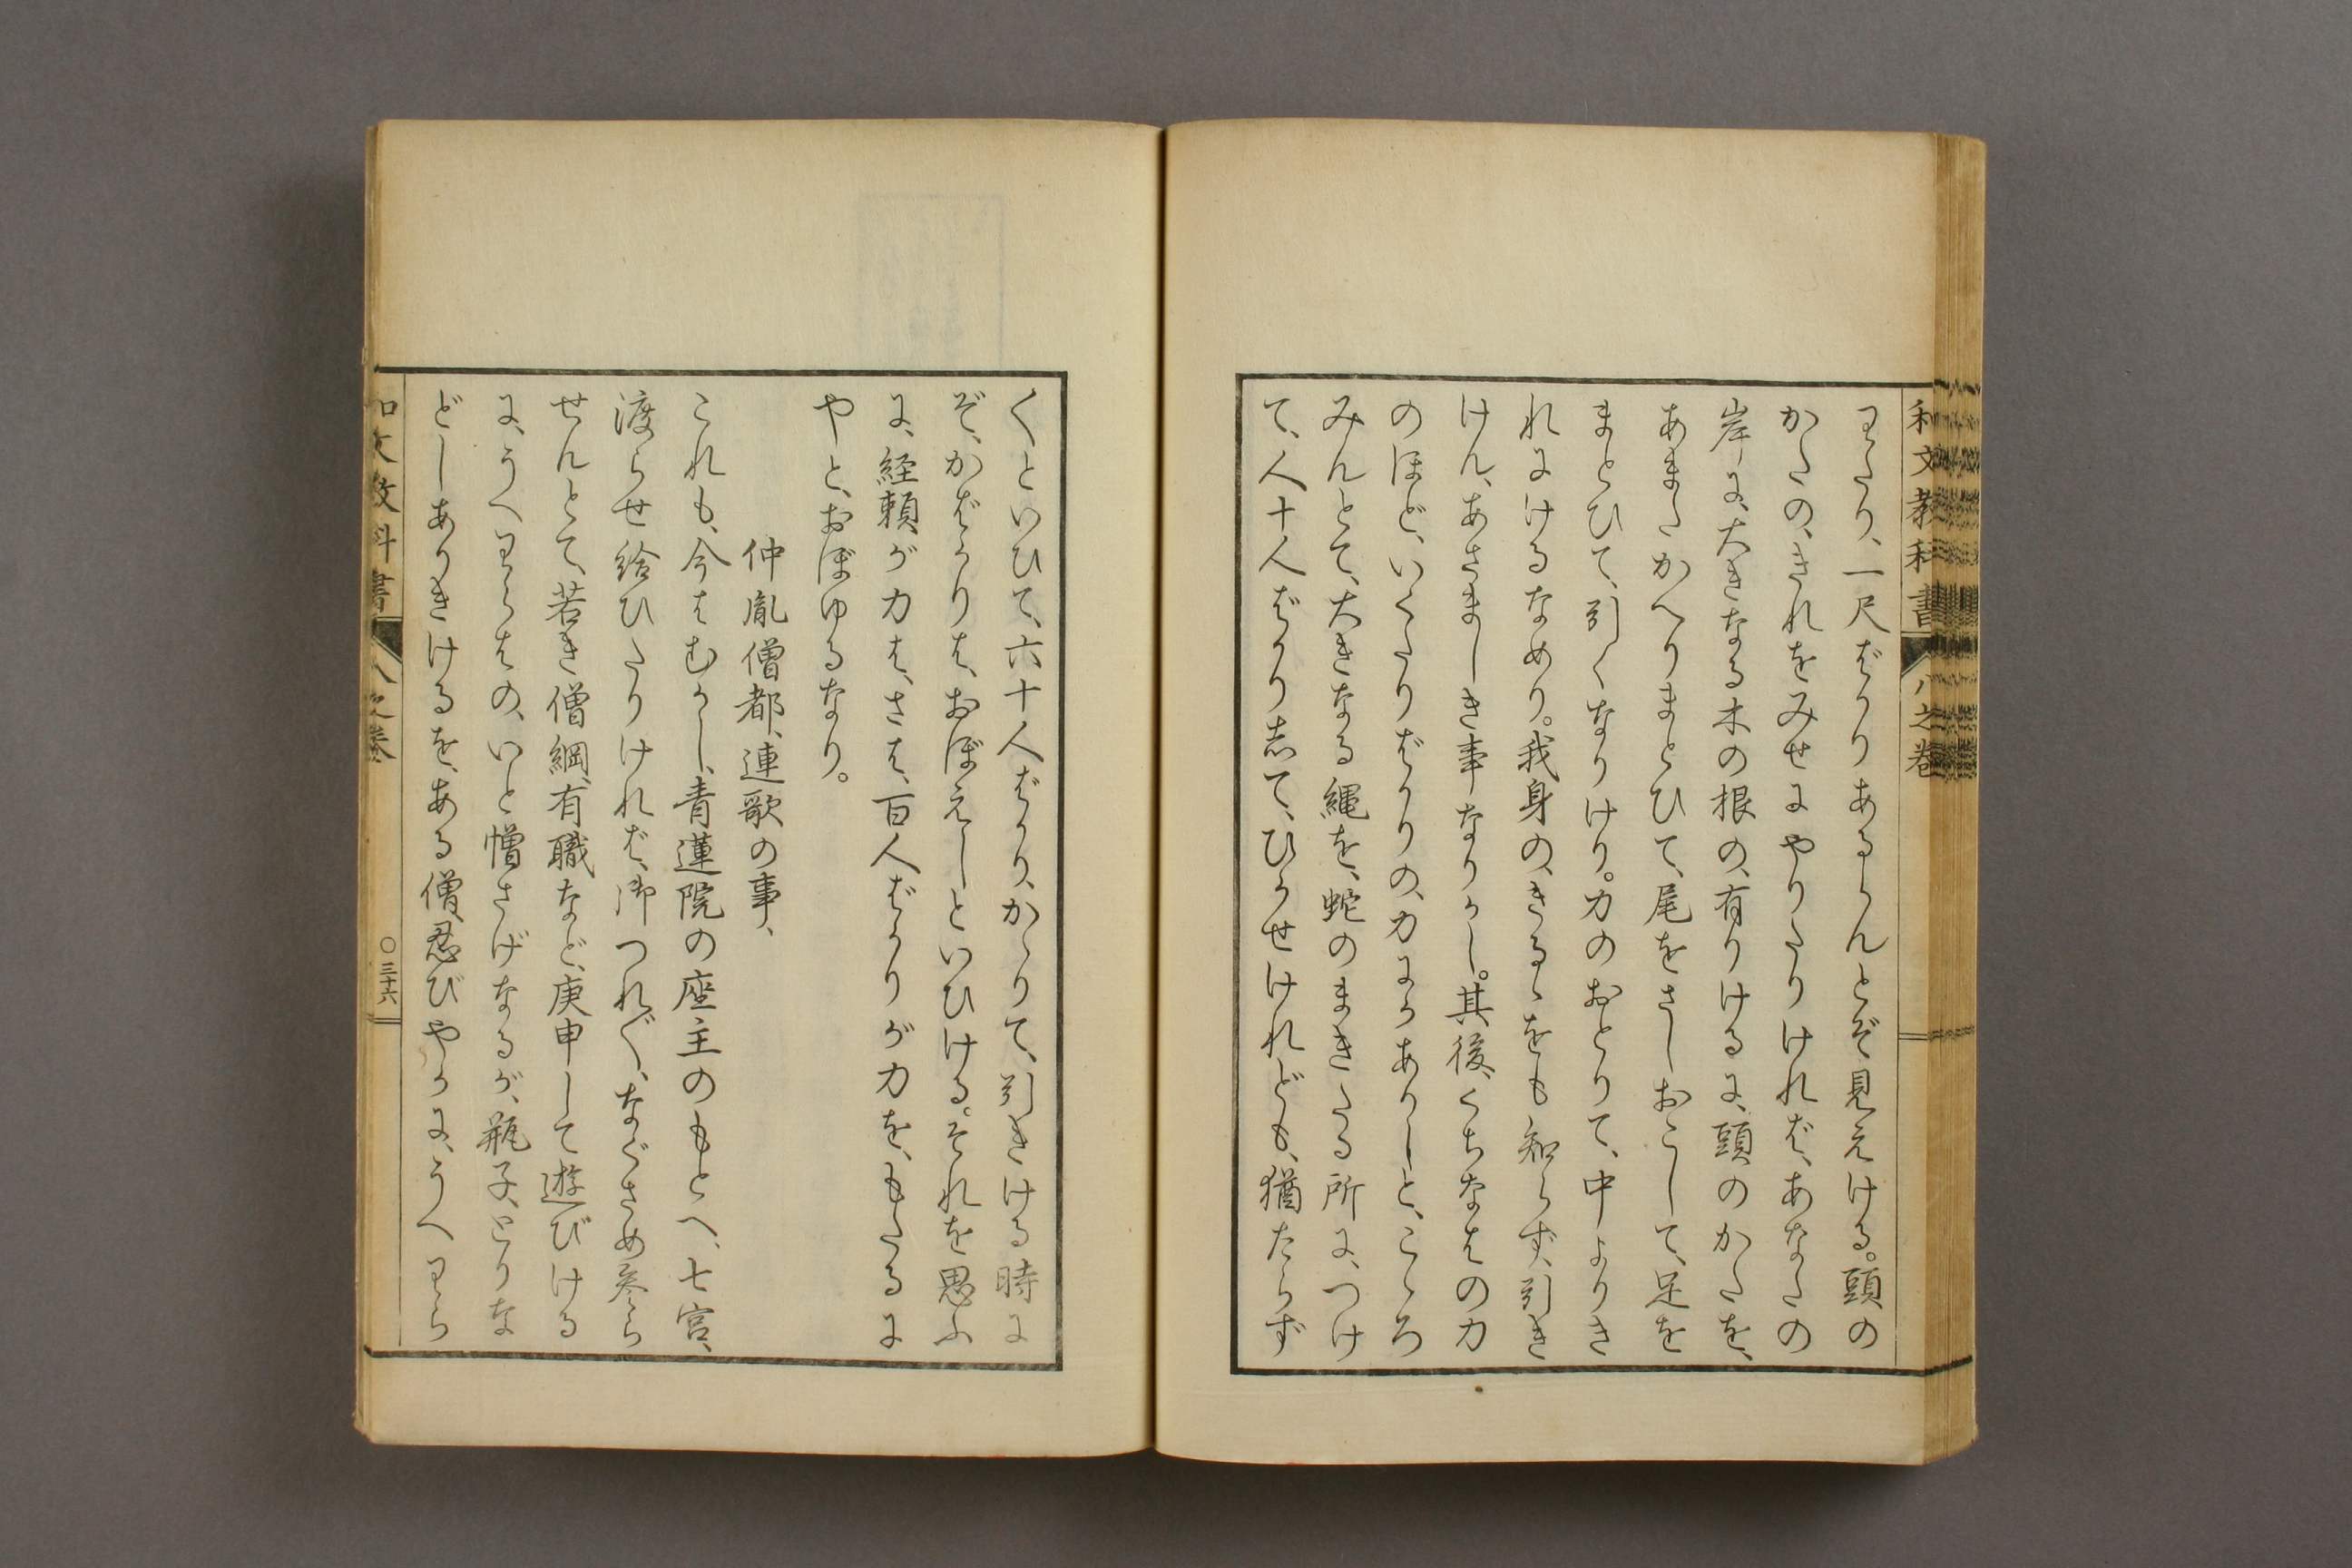 和文教科書 八之巻
わたり、一尺ばかりあるらんとぞ見えける。頭の
かたの、きれをみせにやりたりければ、あなたの
岸に、大きなる木の根の、有りけるに、頭のかたを、
あまたかへりまとひて、尾をさしおこして、足を
まとひて、引くなりけり。力のおとりて、中よりき
れにけるなめり。我身の、きるゝをも知らず、引き
けん、あさましき事なりかし。其後、くちなはの力
のほど、いくたりばかりの、力にかありしと、こゝろ
みんとて、大きなる縄を、蛇のまきたる所に、つけ
て、人十人ばかりして、ひかせけれども、猶たらず
くといひて、六十人ばかり、かゝりて、引きける時に
ぞ、かばかりは、おぼえしといひける。それを思ふ
に、経頼が力は、さは、百人ばかりが力を、もたるに
やと、おぼゆるなり。
仲胤僧都、連歌の事、
これも、今はむかし、青蓮院の座主のもとへ、七宮、
渡らせ給ひたりければ、御つれ〴〵、なぐさめ参ら
せんとて、若き僧綱、有職など、庚申して遊びける
に、うへわらはの、いと憎さげなるが、瓶子、とりな
どしありきけるを、ある僧、忍びやかに、うへわら
和文教科書 八之巻 〇三十六